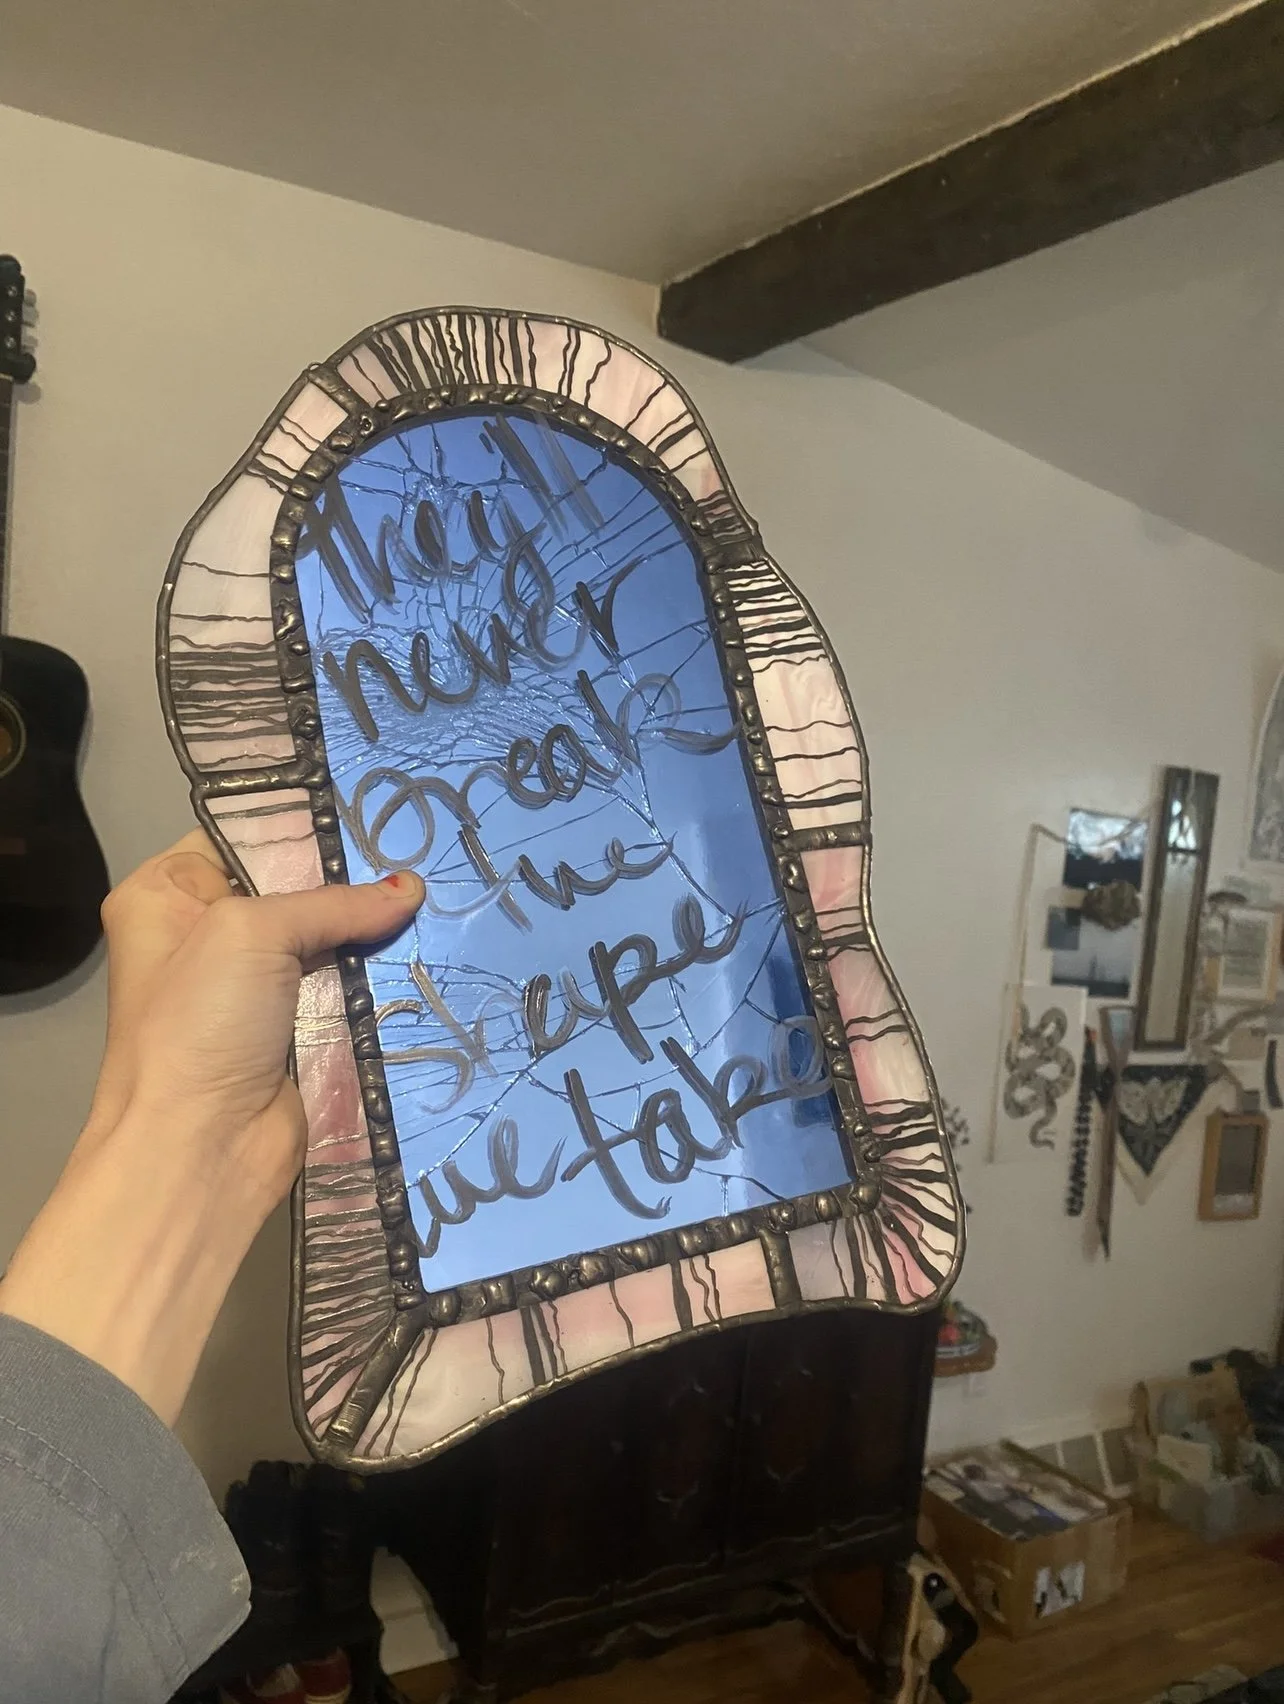 they'll
never
break
the
shape
we take